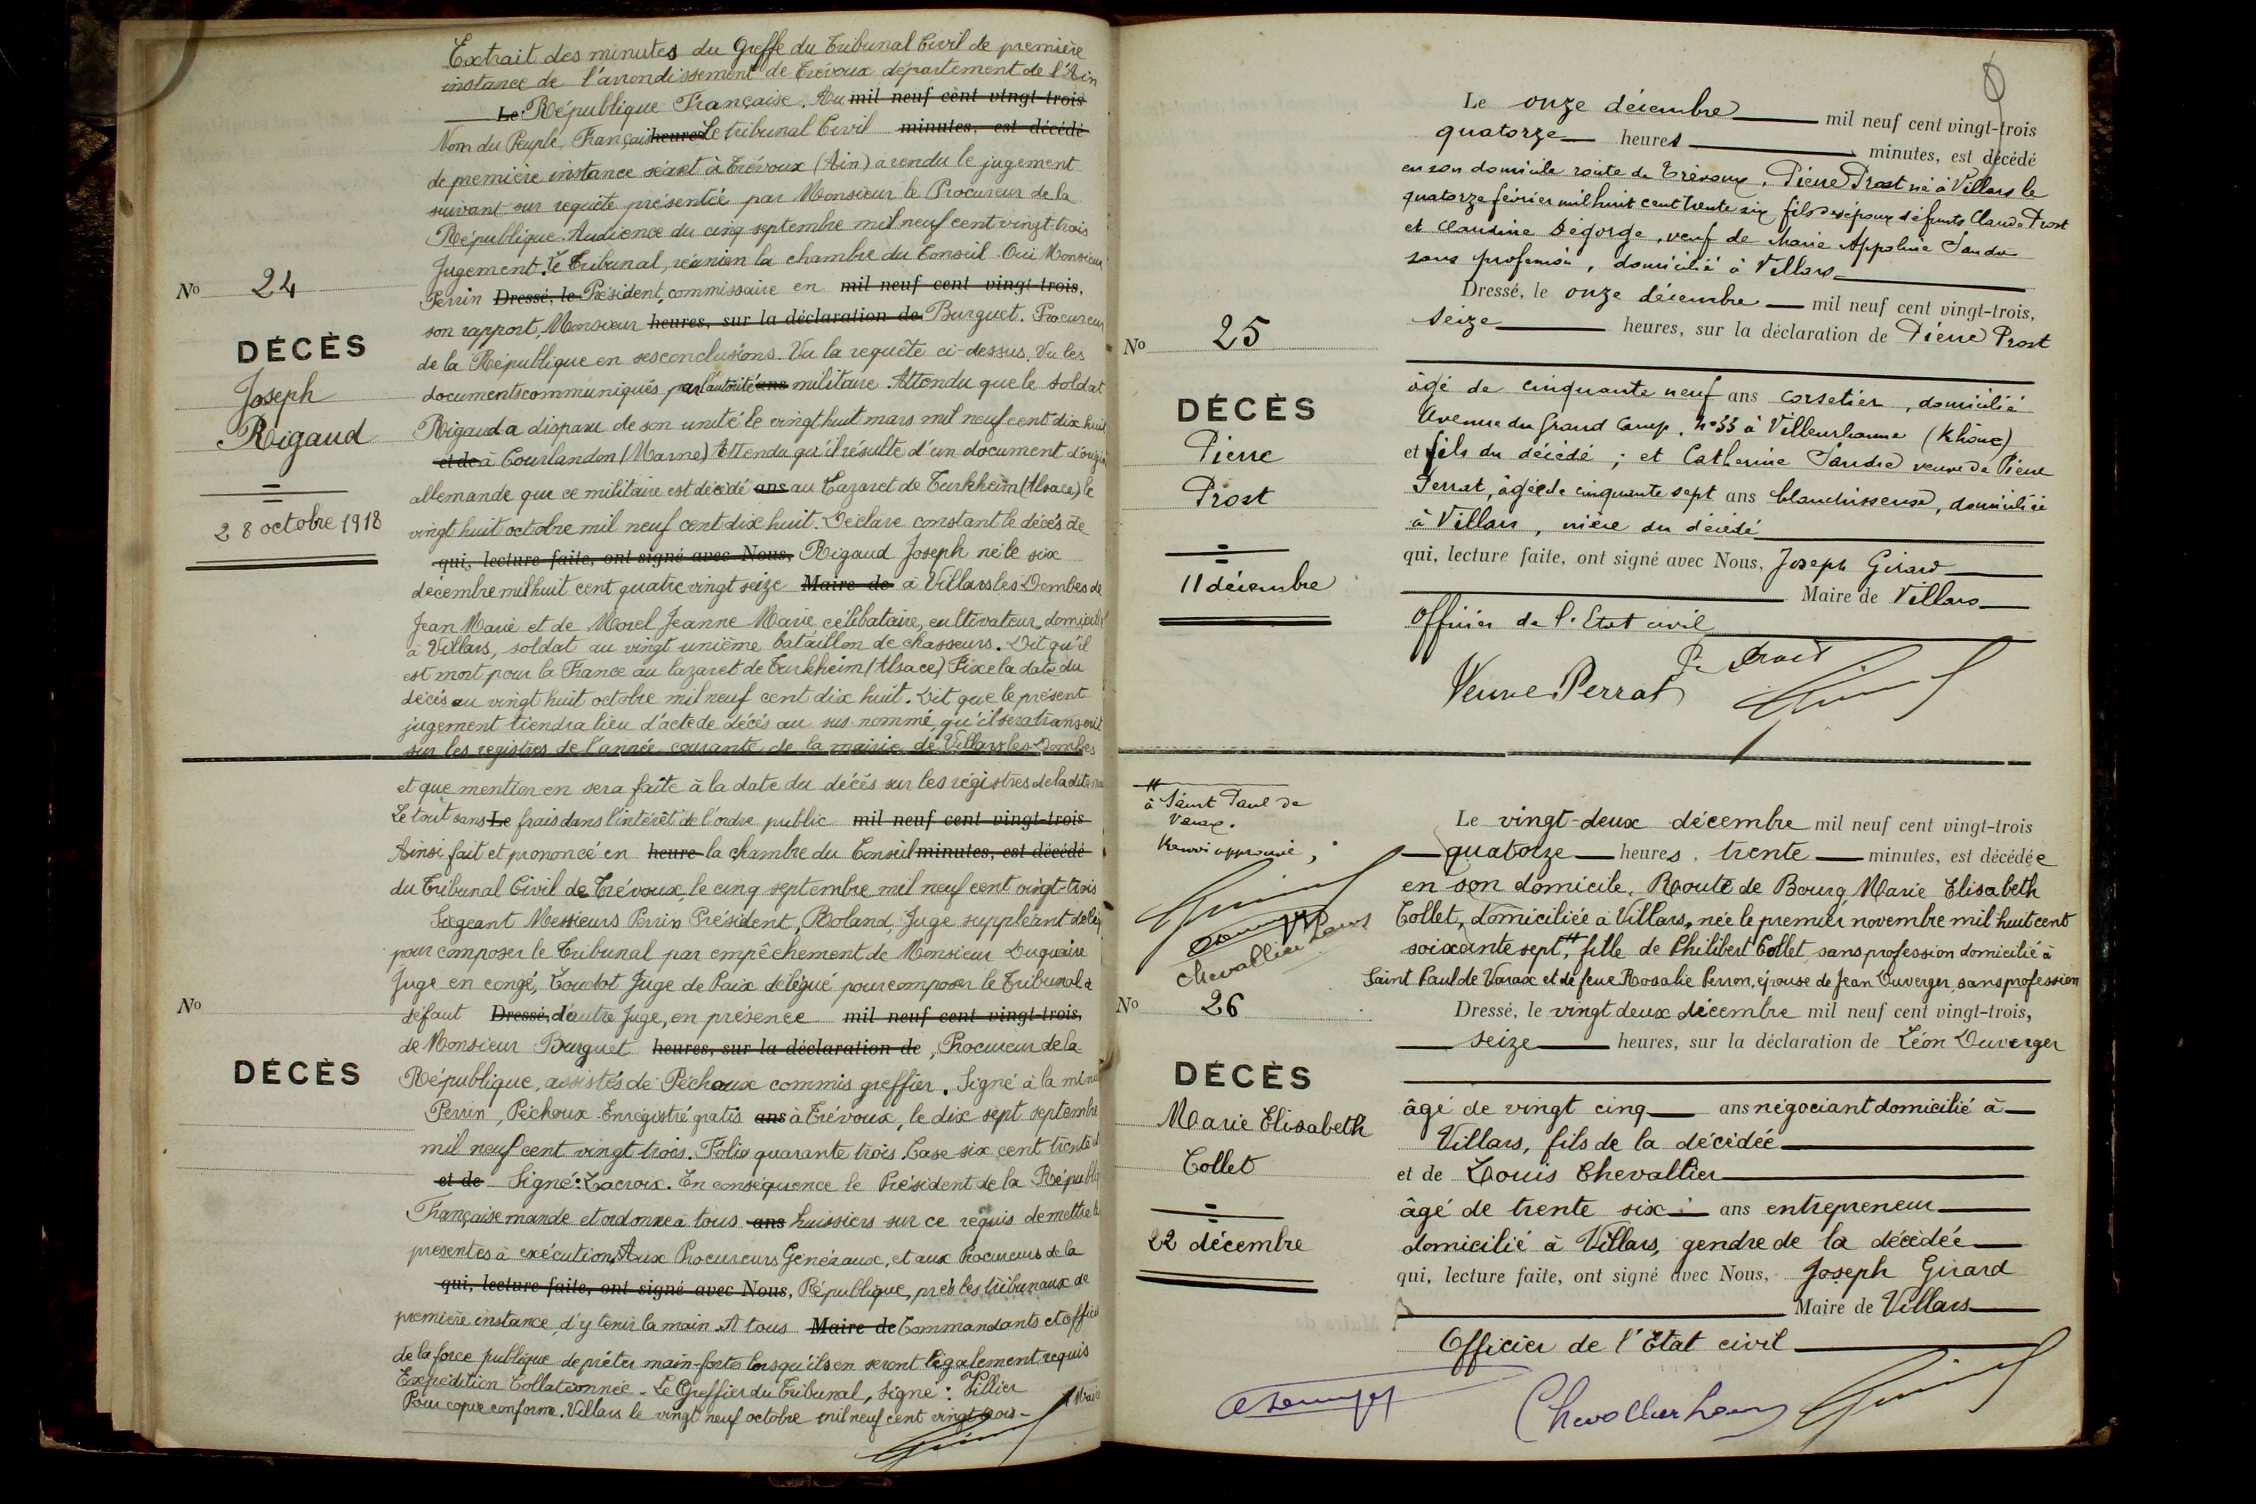 Extrait des minutes du Greffe du Tribunal Civil de première
instance de l'arrondissement de Trévoux département de l'Ain
Le République Française. Au mil neuf cent vingt-trois
Nom du Peuple Français heures Le tribunal Civil minutes, est décédé
de première instance séant à Trévoux (Ain) a rendu le jugement
suivant sur requête présentée par Monsieur le Procureur de la
République. Audience du cinq septembre mil neuf cent vingt-trois
Jugement. Le Tribunal, réuni en la chambre du Conseil. Ouï Monsieur
Perrin Dressé, le Président, commissaire en mil neuf cent vingt-trois,
son rapport, Monsieur heures, sur la déclaration de Burguet. Procureur
de la République en ses conclusions. Vu la requête ci-dessus. Vu les
documents communiqués par l'autorité ans militaire. Attendu que le soldat
Rigaud a disparu de son unité le vingt huit mars mil neuf cent dix huit
et de à Courlandon (Marne) Attendu qu'il résulte d'un document d'origine
allemande que ce militaire est décédé ans au Lazaret de Turkheim (Alsace) le
vingt huit octobre mil neuf cent dix huit. Déclare constant le décès de
qui, lecture faite, ont signé avec Nous, Rigaud Joseph né le six
décembre mil huit cent quatre vingt seize Maire de à Villars les Dombes de
Jean Marie et de Morel Jeanne Marie, célibataire, cultivateur, domicilié
à Villars, soldat au vingt unième bataillon de chasseurs. Dit qu'il
est mort pour la France au lazaret de Turkheim (Alsace) Fixe la date du
décès au vingt huit octobre mil neuf cent dix huit. Dit que le présent
jugement tiendra lieu d'acte de décès au sus nommé, qu'il sera transcrit
sur les registres de l'année courante de la mairie de Villars les Dombes
et que mention en sera faite à la date du décès sur les régistres de la dite
Le tout sans Le frais dans l'intérêt de l'ordre public mil neuf cent vingt-trois
Ainsi fait et prononcé en heure la chambre du Conseil minutes, est décédé
du Tribunal Civil de Trévoux, le cinq septembre mil neuf cent vingt-trois
Siegeant Messieurs Perrin Président, Roland, Juge suppléant
pour composer le Tribunal par empêchement de Monsieur Duquaire
Juge en congé, Coudot Juge de Paix délégué pour composer le Tribunal à
défaut Dressé, d'autre Juge, en présence mil neuf cent vingt-trois,
de Monsieur Burguet heures, sur la déclaration de, Procureur de la
République, assistés de Péchoux commis greffier. Signé à la minute
Perrin, Péchoux. Enregistré gratis ans à Trévoux, le dix sept septembre
mil neuf cent vingt trois. Folio quarante trois. Case six cent trente
et de Signé: Lacroix. En conséquence le Président de la République
Française mande et ordonne à tous ans huissiers sur ce requis de mettre les
presentes à exécution, Aux Procureurs Généraux, et aux Procureurs de la
qui, lecture faite, ont signé avec Nous, République, près les tribunaux de
première instance, d'y tenir la main. A tous Maire de Commandants et officiers
de la force publique de prêter main-forte lorsqu'ils en seront légalement requis
Expédition Collationnée. Le Greffier du Tribunal, Signé: Villier
Pour copie conforme. Villars le vingt neuf octobre mil neuf cent vingt trois - Maire
No 24
DÉCÈS
Joseph
Rigaud
28 octobre 1918
No
DÉCÈS
Le onze décembre mil neuf cent vingt-trois
quatorze heures minutes, est décédé
en son domicile route de Trévoux, Pierre Prost né à Villars le
quatorze février mil huit cent trente six, fils des époux défunts Claude Prost
et Claudine Bégorge, veuf de Marie Appoline Jandre
sans profession, domicilié à Villars
Dressé, le onze décembre mil neuf cent vingt-trois,
seize heures, sur la déclaration de Pierre Prost
âgé de cinquante neuf ans corsetier, domicilié
Avenue du Grand Camp. n°55 à Villeurbanne (Rhône)
et fils du décédé ; et Catherine Jandre veuve de Pierre
Perrat, âgée de cinquante sept ans blanchisseuse, domiciliée
à Villars, nièce du décédé
qui, lecture faite, ont signé avec Nous, Joseph Girard
Maire de Villars
Officier de l'Etat civil
P. Prost
Veuve Perrat
No 25
DÉCÈS
Pierre
Prost
11 décembre
# à Saint Paul de
Varax.
Renvoi approuvé,
Chevallier Louis
No 26
DÉCÈS
Marie Elisabeth
Collet
22 décembre
Le vingt-deux décembre mil neuf cent vingt-trois
quatorze heures, trente minutes, est décédée
en son domicile, Route de Bourg, Marie Elisabeth
Collet, domiciliée à Villars, née le premier novembre mil huit cent
soixante sept, # fille de Philibert Collet, sans profession domicilié à
Saint Paul de Varax et de feue Rosalie Perron, épouse de Jean Duverger, sans profession
Dressé, le vingt deux décembre mil neuf cent vingt-trois,
seize heures, sur la déclaration de Léon Duverger
âgé de vingt cinq ans négociant domicilié à
Villars, fils de la décédée
et de Louis Chevallier
âgé de trente six ans entrepreneur
domicilié à Villars, gendre de la décédée
qui, lecture faite, ont signé avec Nous, Joseph Girard
Maire de Villars
Officier de l'Etat civil
Chevallier Louis